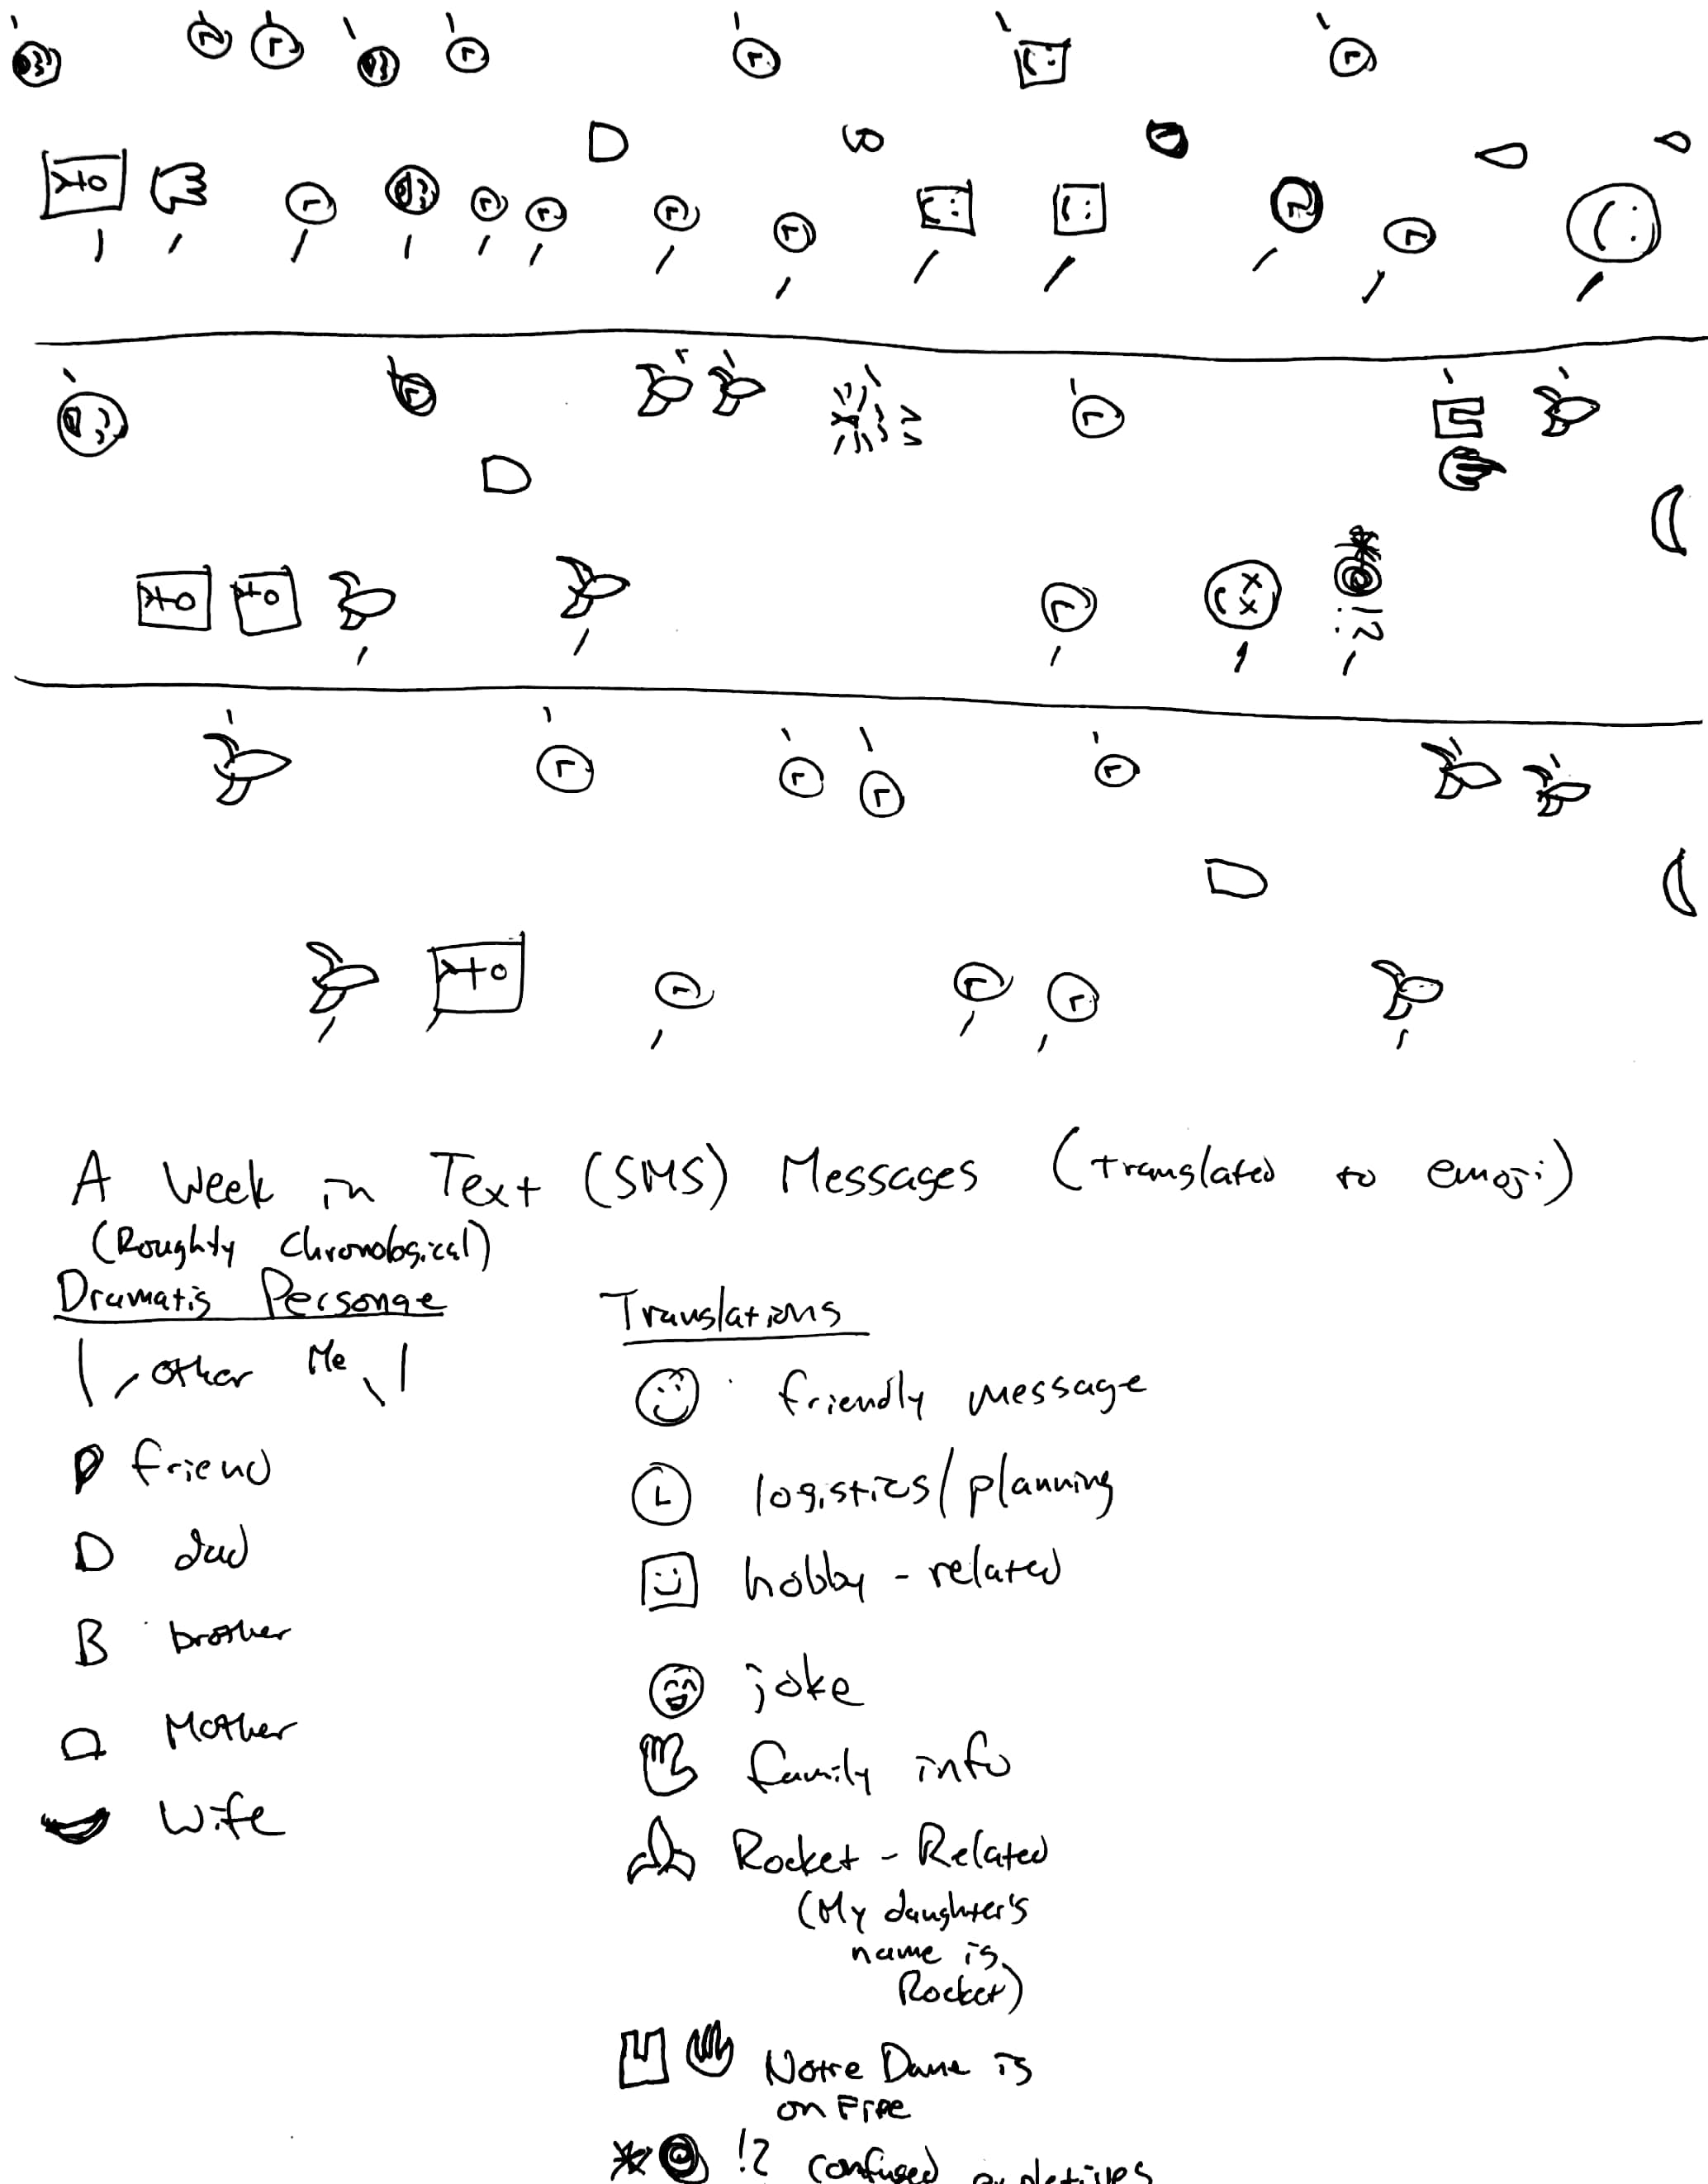 A Week in Text (SMS) Messages (translated to emoji)
(Roughly Chronological)
Dramatis Personae
other Me
friend
D dad
B brother
Mother
Wife
Translations
friendly message
L logistics/planning
hobby-related
joke
family info
Rocket-Related
(My daughter's
name is
Rocket)
Notre Dame is
on Fire
!? confused expletives